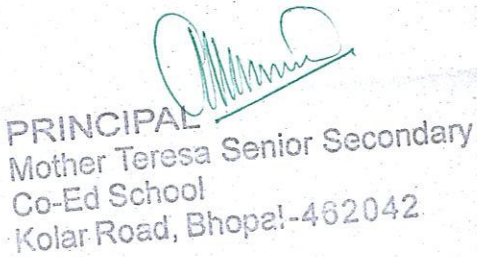 PRINCIPAL
Mother Teresa Senior Secondary
Co-Ed School
Kolar Road, Bhopal-462042